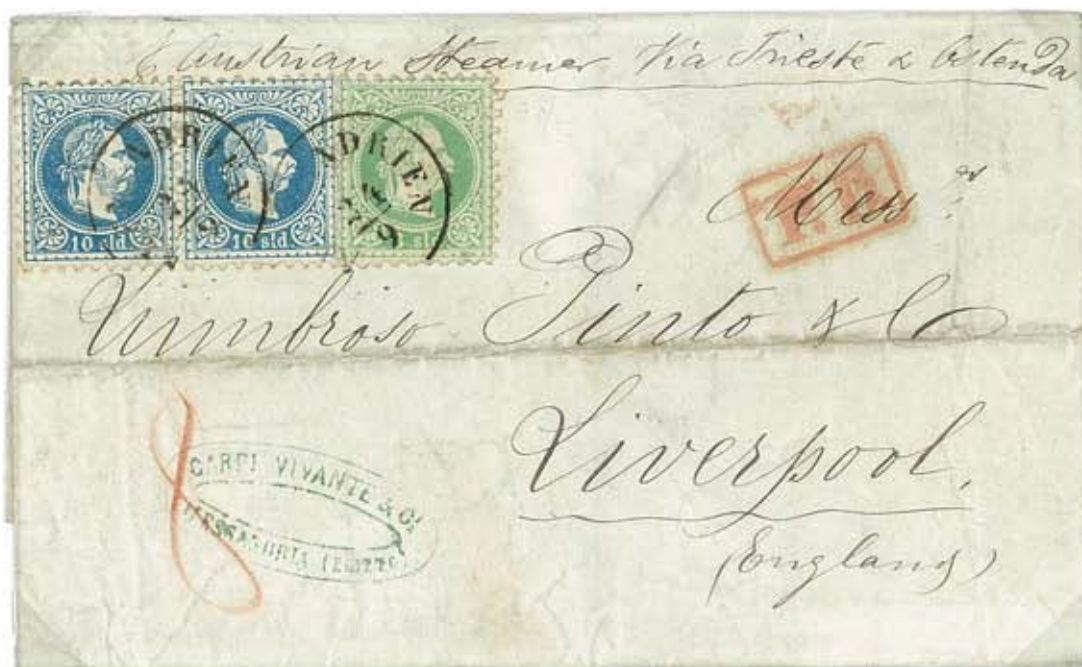 Austrian Steamer Via Trieste & Ostenda
10 sld
10 sld
sld
NDRIEN
NDRIEN
P.D.
Mess.rs
Lumbroso Pinto & Co
Liverpool.
(England)
8
CARPI VIVANTE & C.
ALESSANDRIA (EGITTO)